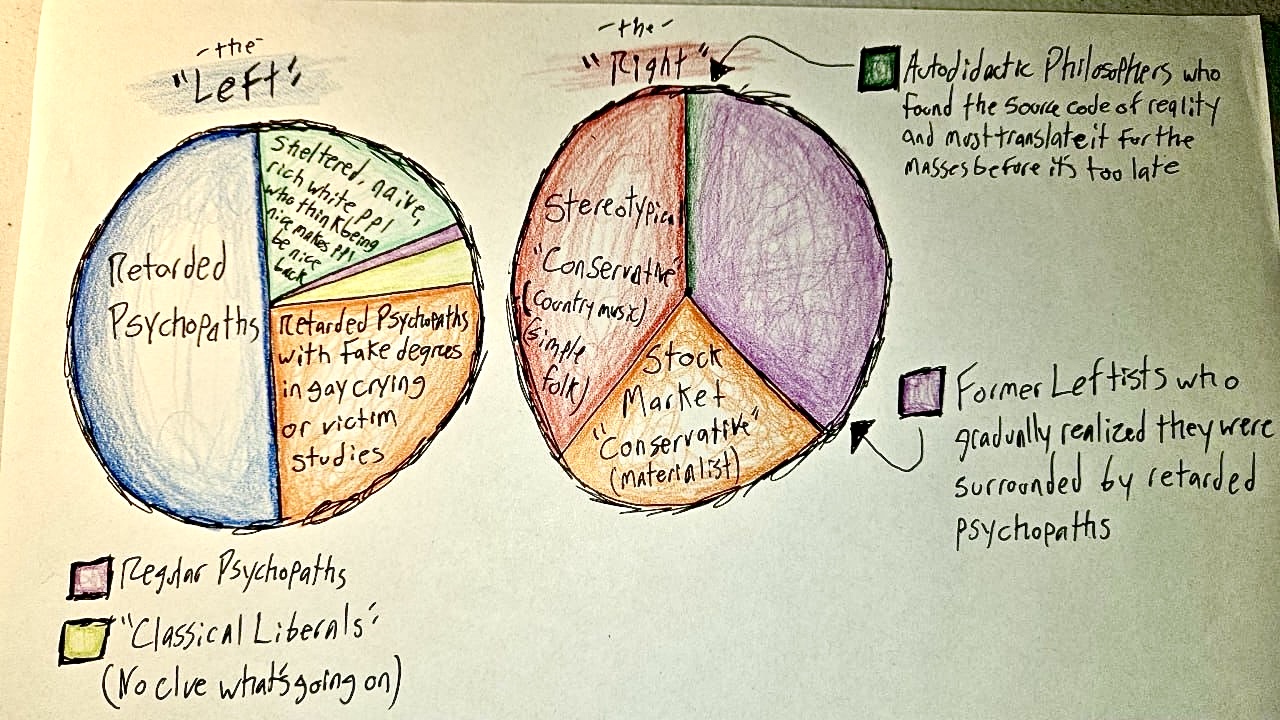 -the-
"Left"
Retarded
Psychopaths
Sheltered, naive,
rich white ppl
who think being
nice makes ppl
be nice
back
Retarded Psychopaths
with Fake degrees
in gay crying
or victim
studies
Regular Psychopaths
"Classical Liberals"
(No clue what's going on)
-the-
"Right"
Stereotypical
"Conservative"
(Country music)
(simple
folk)
Stock
Market
"Conservative"
(materialist)
Autodidactic Philosophers who
found the source code of reality
and must translate it for the
masses before it's too late
Former Leftists who
gradually realized they were
surrounded by retarded
psychopaths